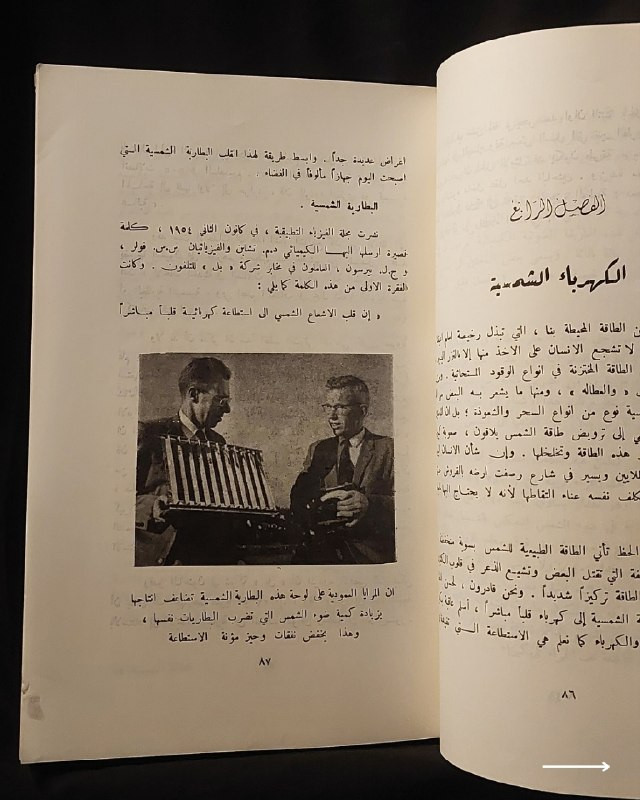 الفصل الرابع
الكهرباء الشمسية
الطاقة المحيطة بنا ، التي تبذل رخيصة
لا تشجع الانسان على الاخذ منها
الطاقة المختزنة في انواع الوقود
« والعطاله » ، ومنها ما يشعر به البعض
نوع من انواع السحر والشعوذة ؛ بل ان
إلى ترويض طاقة الشمس يلاقون ،
هذه الطاقة وتخلخلها . وإن شأن الانسان
ويسير في شارع رصفت ارضه
نفسه عناء التقاطها لأنه لا يحتاج
الحظ تأتي الطاقة الطبيعية للشمس بسوية
التي تقتل البعض وتشيع الذعر في قلوب
الطاقة تركيزاً شديداً . ونحن قادرون ،
الشمسية إلى كهرباء قلباً مباشراً ،
والكهرباء كما نعلم هي الاستطاعة التي
٨٦
اغراض عديدة جداً . وابسط طريقة لهذا القلب البطارية الشمسية التي
اصبحت اليوم جهازاً مألوفاً في الفضاء .
البطارية الشمسية .
نشرت مجلة الفيزياء التطبيقية ، في كانون الثاني ١٩٥٤ ، كلمة
قصيرة ارسلها اليها الكيميائي د.م. تشابن والفيزيائيان س.س. فولر ،
و ج.ل. بيرسون ، العاملون في مخابر شركة « بل » للتلفون . وكانت
الفقرة الاولى من هذه الكلمة كما يلي :
« إن قلب الاشعاع الشمسي الى استطاعة كهربائية قلباً مباشراً
ان المرايا العمودية على لوحة هذه البطارية الشمسية تضاعف انتاجها
بزيادة كمية ضوء الشمس التي تضرب البطاريات نفسها ،
وهذا يخفض نفقات وحيز مؤنة الاستطاعة
٨٧